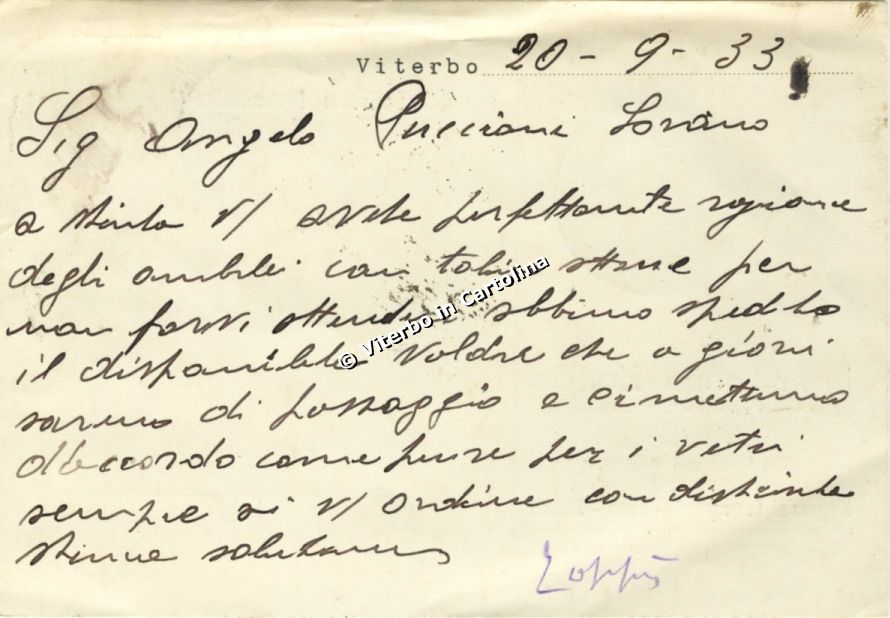 Viterbo 20 - 9 - 33
Sig Angelo Puccioni Sorano
a V/ avete perfettamente ragione
degli con per
non farvi attendere abbiamo spedito
© Viterbo in Cartolina
il disponibile che a giorni
saremo di passaggio e ci mettiamo
d'accordo come pure per i vetri
sempre ai V/ ordini con distinta
stima salutiamo